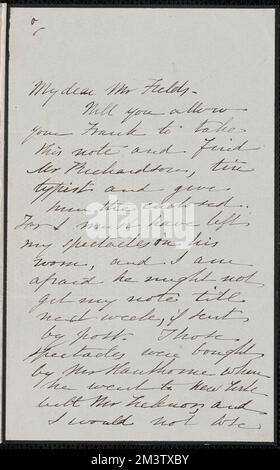 My dear Mr Fields -
Will you allow
your Frank to take
this note and find
Mr Richardson, tin
typist and give
him the enclosed.
For I must have left
my spectacles in his
room, and I am
afraid he might not
get my note till
next week, if sent
by post. Those
spectacles were bought
by Mr Hawthorne when
he went to New York
with Mr Ticknor, and
I would not lose
alamy
Image ID: 2M3TXBY
www.alamy.com